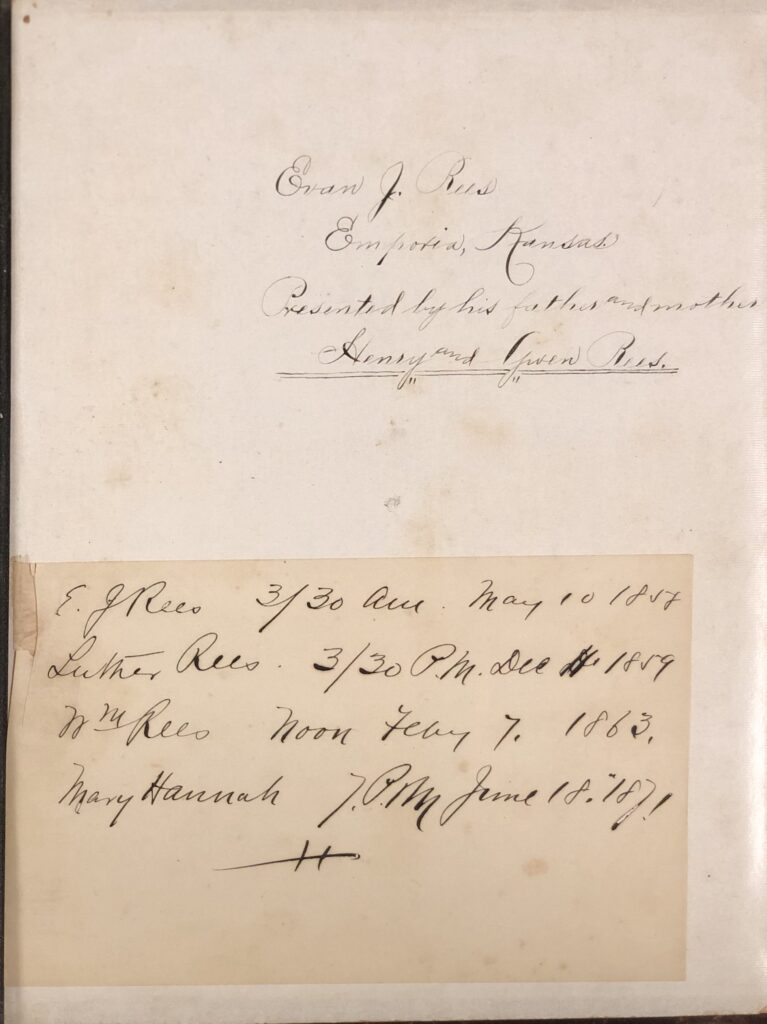 Evan J. Rees
Emporia, Kansas.
Presented by his father and mother
Henry and Gwen Rees.
E. J Rees 3/30 am. May 10 1858
Luther Rees. 3/30 P.M. Dec 1859
Wm Rees Noon Feby 7. 1863.
Mary Hannah 7. P.M June 18. 1871